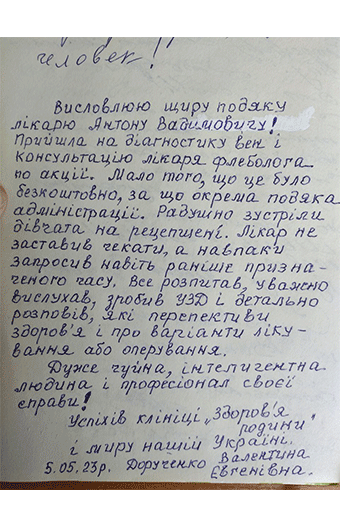 человек!
Висловлюю щиру подяку
лікарю Антону Вадимовичу!
Прийшла на діагностику вен і
консультацію лікаря флеболога
по акції. Мало того, що це було
безкоштовно, за що окрема подяка
адміністрації. Радушно зустріли
дівчата на рецепщені. Лікар не
заставив чекати, а навпаки
запросив навіть раніше призна-
ченого часу. Все розпитав, уважно
вислухав, зробив УЗД і детально
розповів, які перспективи
здоров'я і про варіанти ліку-
вання або оперування.
Дуже чуйна, інтелигентна
людина і професіонал своєї
справи!
Успіхів клініці „Здоров'я
родини"
і миру нашій Україні.
5.05.23р. Дорученко Валентина
Євгенівна.